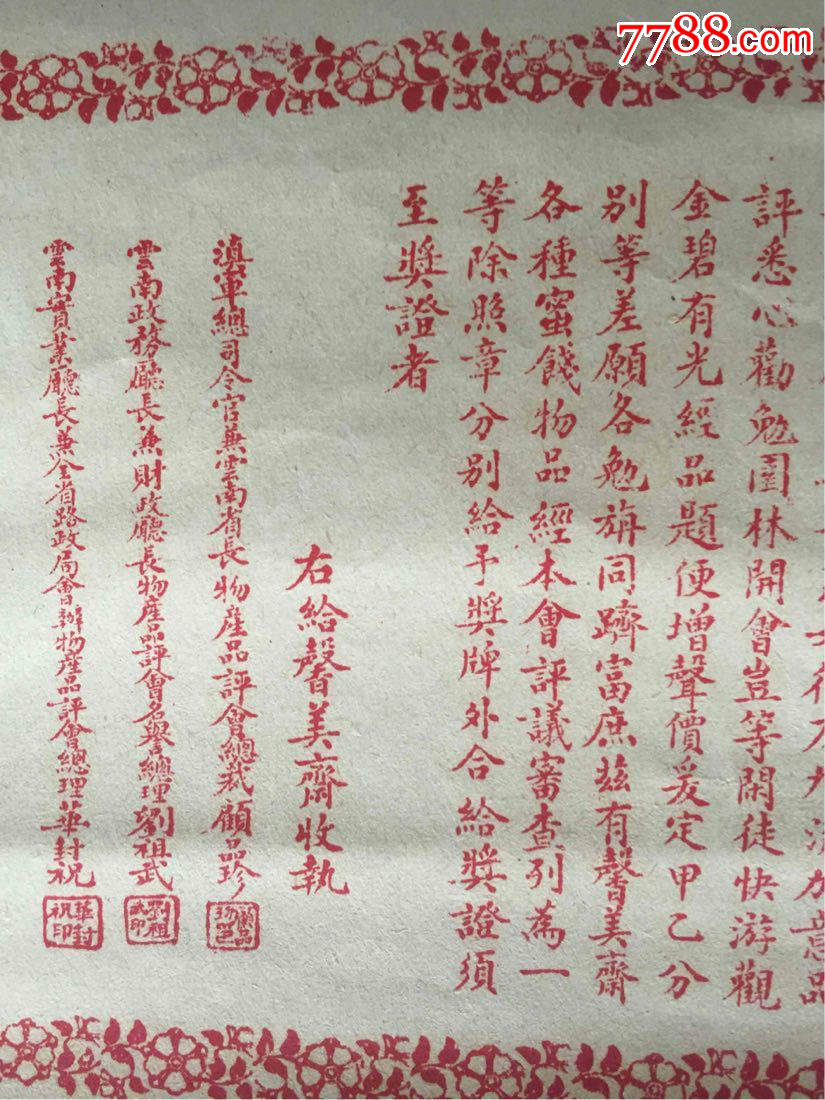 7788.com
加意品
評悉心勸勉園林開會豈等閑徒快游觀
金碧有光經品題便增聲價爰定甲乙分
別等差願各勉旃同躋富庶茲有馨美齋
各種蜜餞物品經本會評議審查列爲一
等除照章分別給予獎牌外合給獎證須
至獎證者
右給馨美齋收執
滇軍總司令官兼雲南省長物產品評會總裁顧品珍
顧品珍印
雲南政務廳長兼財政廳長物產品評會名譽總理劉祖武
劉祖武印
雲南實業廳長兼全省路政局會辦物產品評會總理華封祝
華封祝印